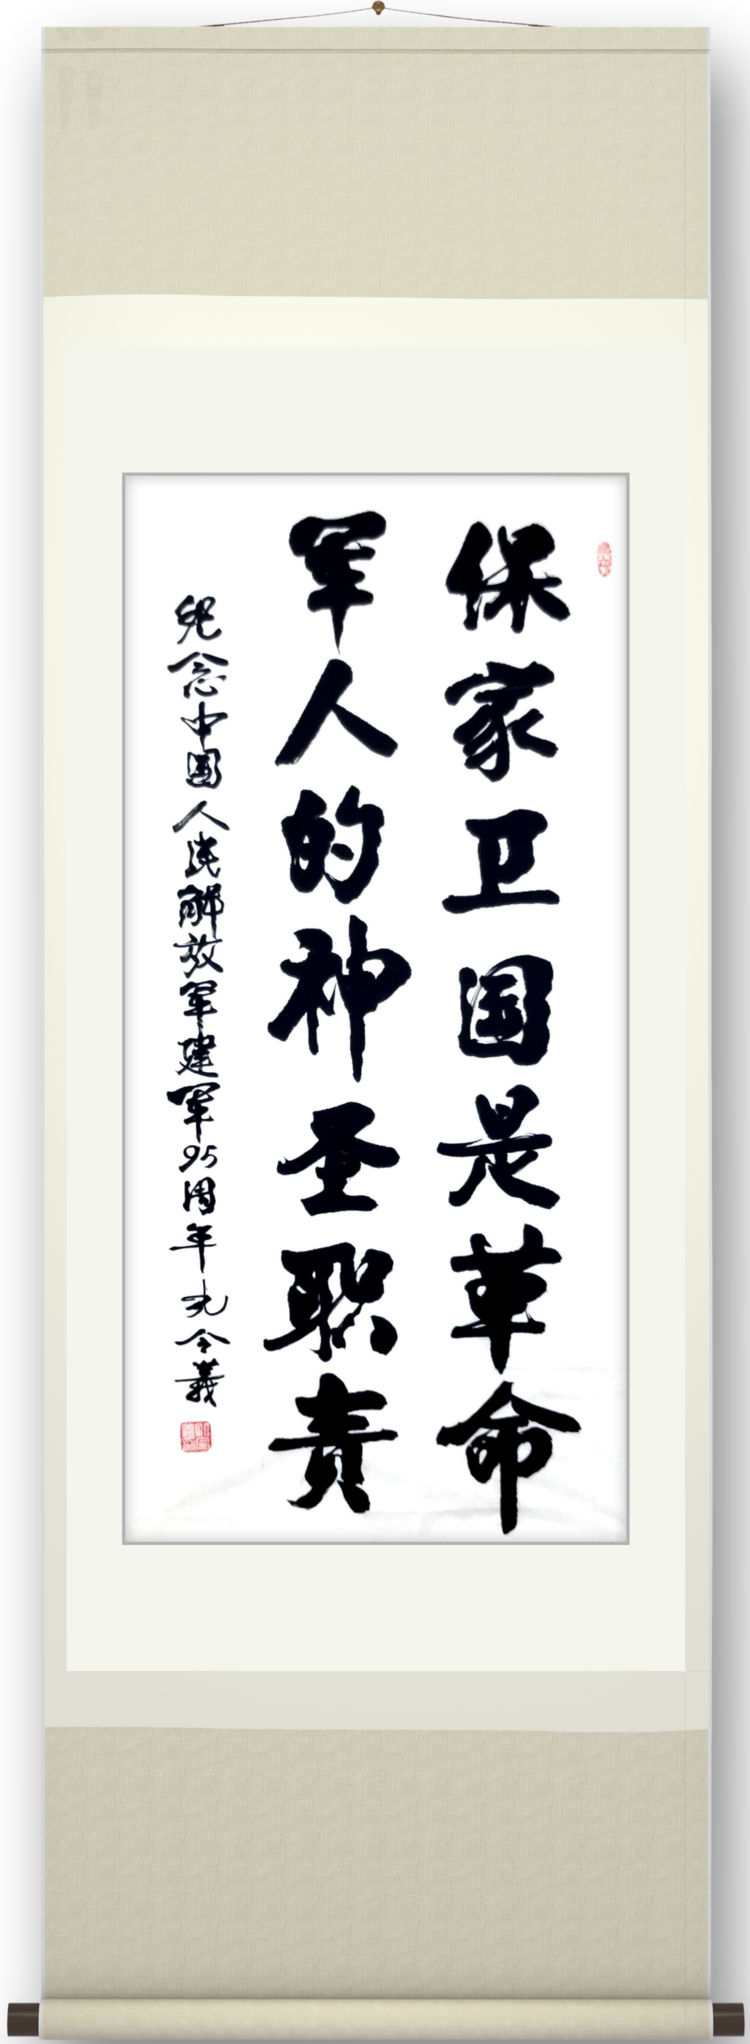 保家卫国是革命
军人的神圣职责
纪念中国人民解放军建军95周年 允令義